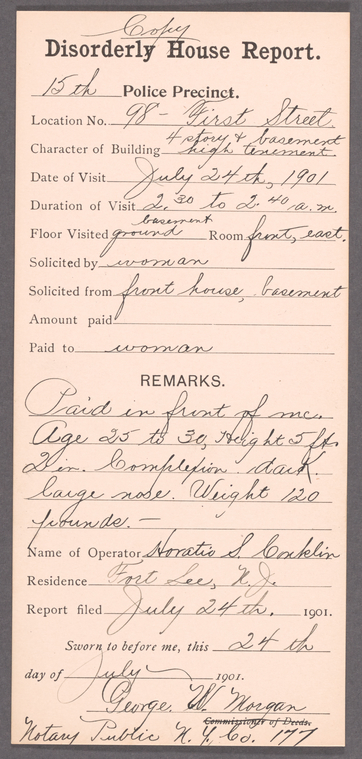 Copy
Disorderly House Report.
15th Police Precinct.
Location No. 98 - First Street.
4 story & basement
Character of Building high tenement
Date of Visit July 24th, 1901
Duration of Visit 2.30 to 2.40 a.m.
basement
Floor Visited ground Room front, east.
Solicited by woman
Solicited from front house, basement
Amount paid
Paid to woman
REMARKS.
Paid in front of me.
Age 25 to 30, Height 5 ft.
2 in. Complexion dark
large nose. Weight 120
pounds. —
Name of Operator Horatio S. Conklin
Residence Fort Lee, N.J.
Report filed July 24th. 1901.
Sworn to before me, this 24th
day of July 1901.
George W. Morgan
Commissioner of Deeds.
Notary Public N.Y. Co. 177